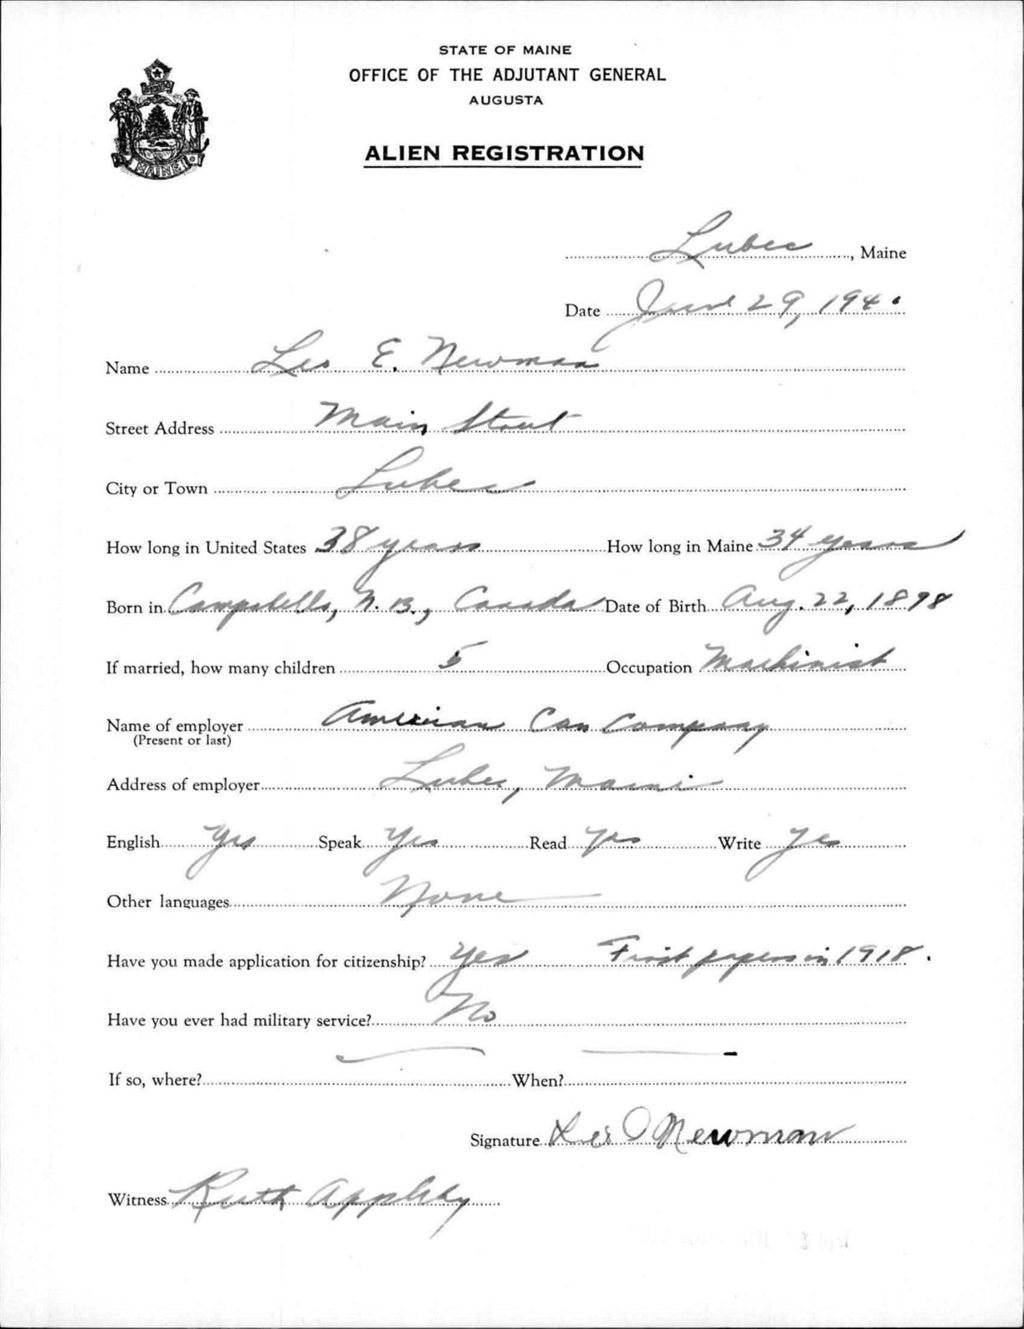 STATE OF MAINE
OFFICE OF THE ADJUTANT GENERAL
AUGUSTA
ALIEN REGISTRATION
MAINE
Lubec, Maine
Date June 29, 1940
Name Leo E. Newman
Street Address Main Street
City or Town Lubec
How long in United States 38 years How long in Maine 34 years
Born in Campobello, N. B., Canada Date of Birth Aug. 22, 1898
If married, how many children 5 Occupation Machinist
Name of employer American Can Company
(Present or last)
Address of employer Lubec, Maine
English Yes Speak Yes Read Yes Write Yes
Other languages None
Have you made application for citizenship? Yes First papers in 1918.
Have you ever had military service? No
If so, where? — When? —
Signature Leo Newman
Witness Ruth Appleby